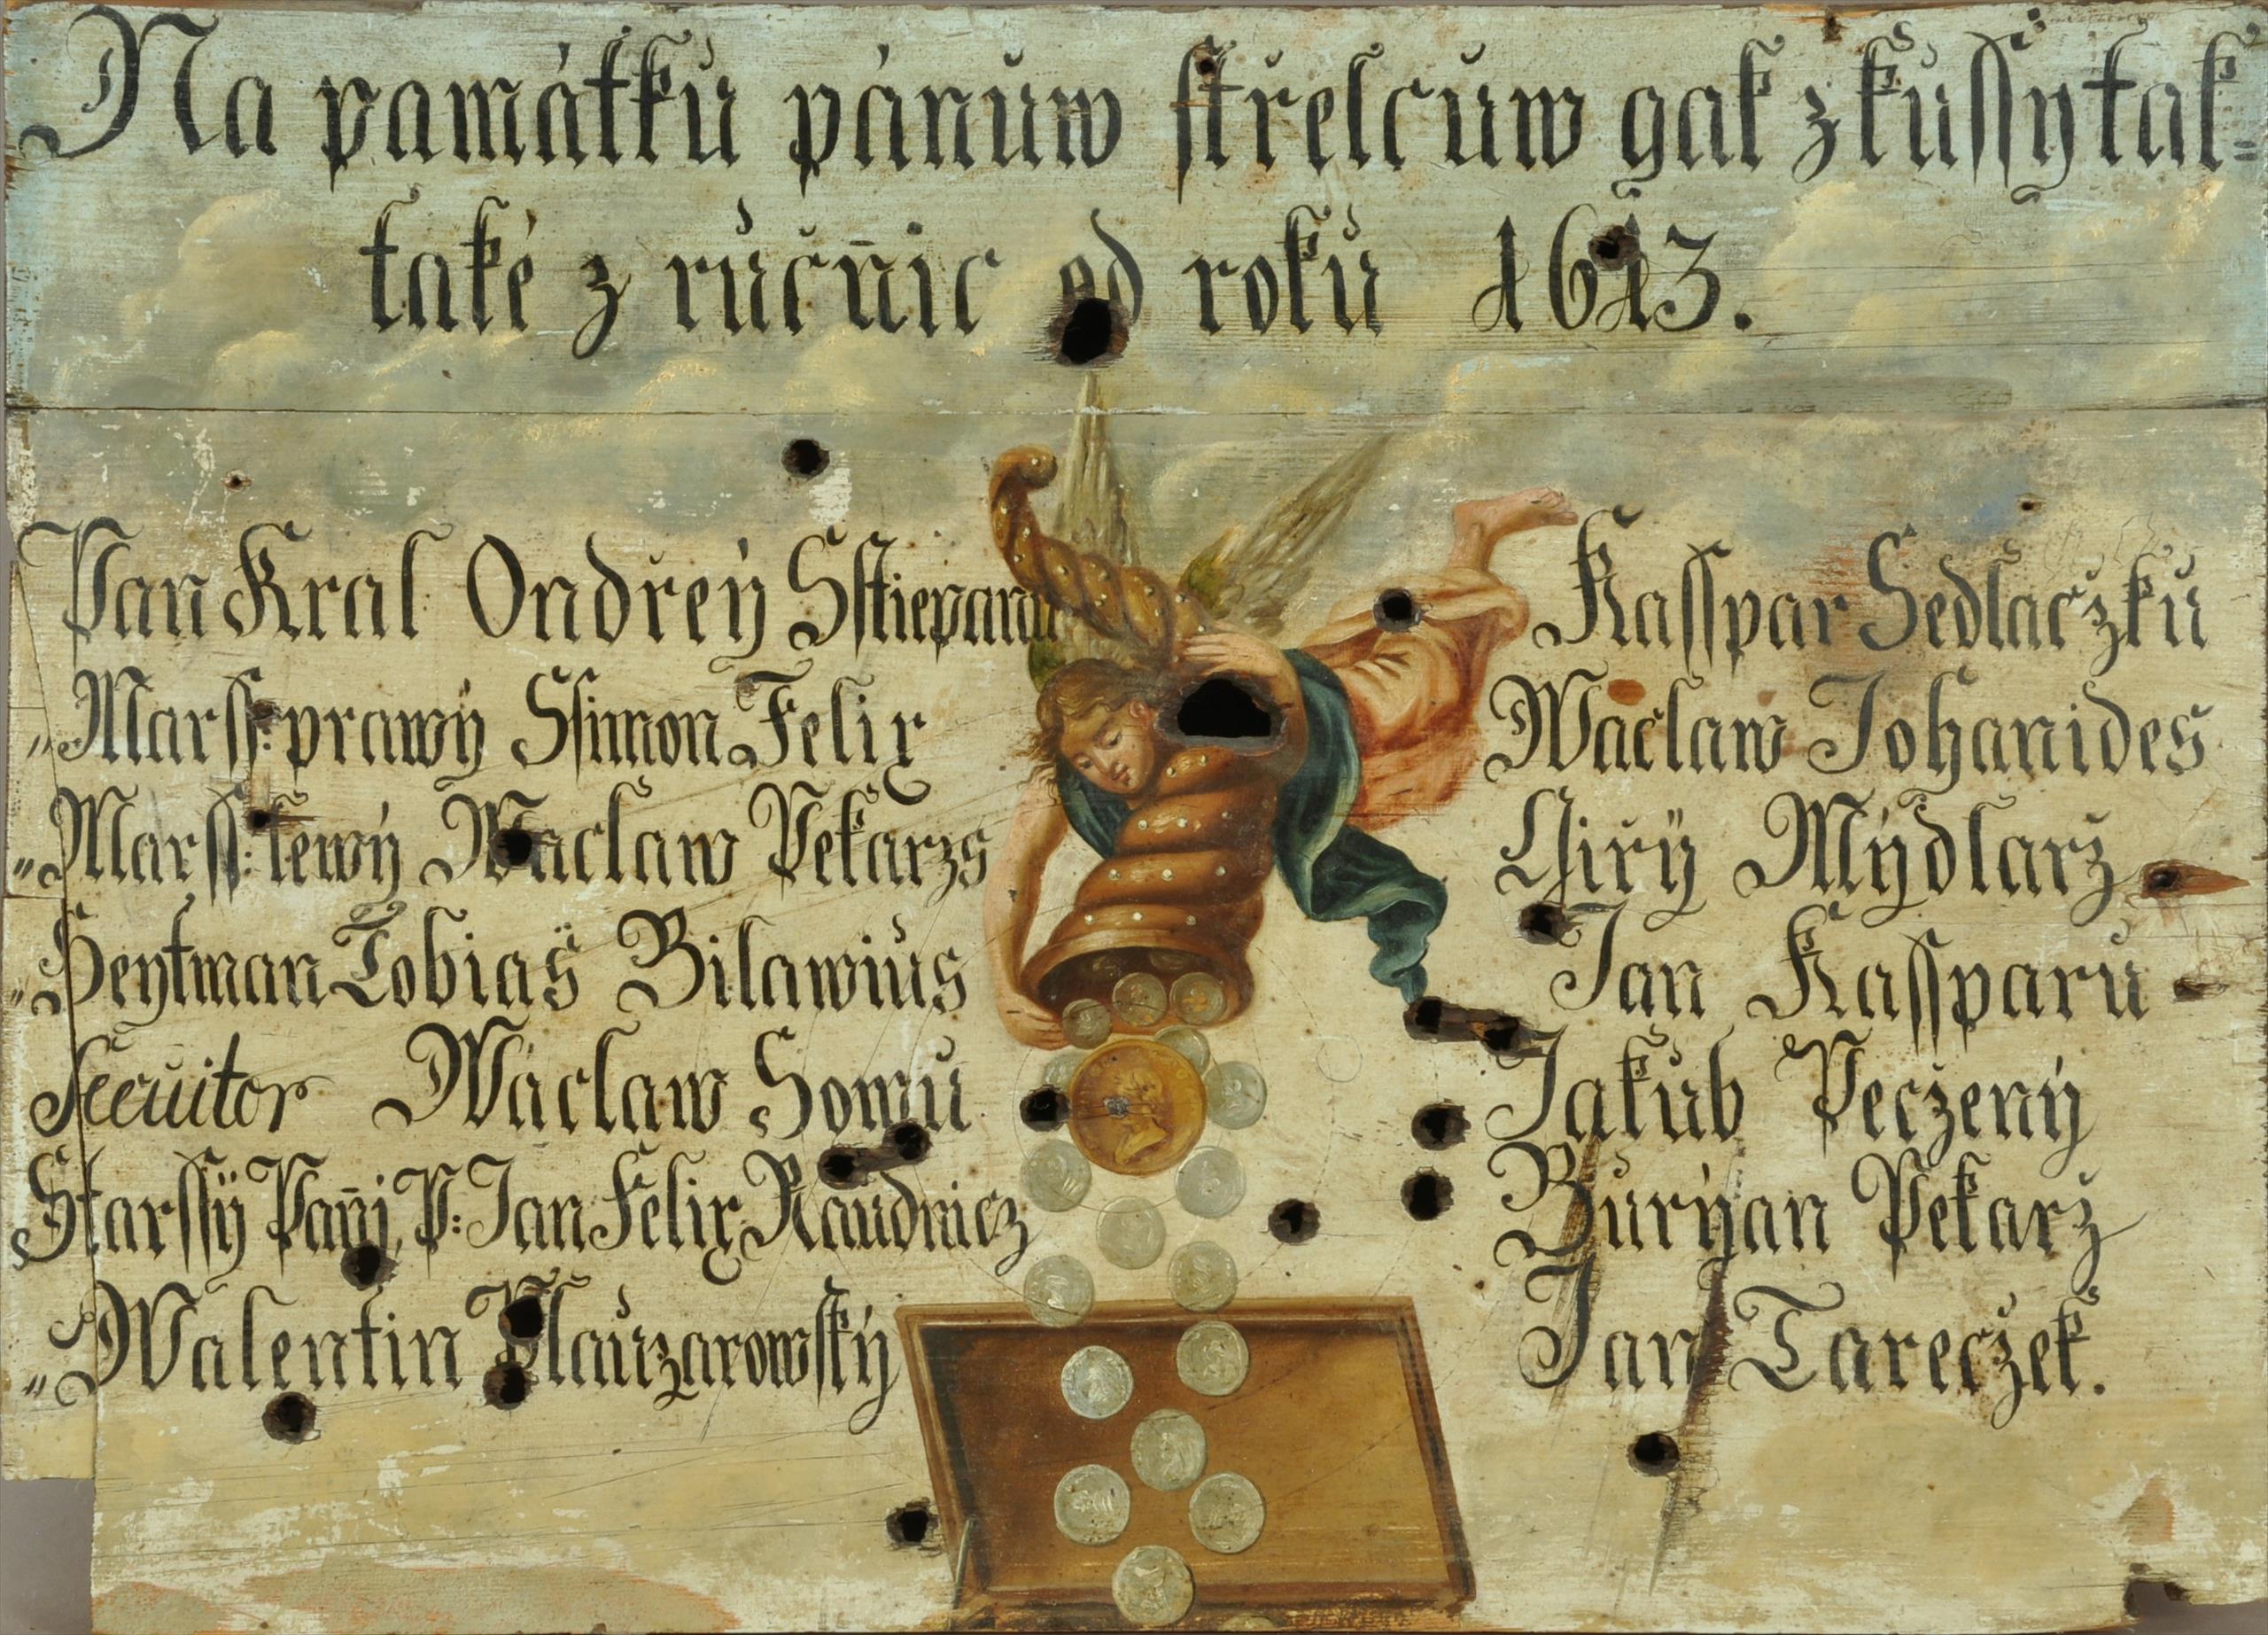 Na památků pánůw střelcůw gak z kůssy tak=
také z růčňic od roků 1613.
Pan Kral Ondřeÿ Sstiepanů
„Marss: prawÿ Ssimon Felix
„Marss: lewÿ Waclaw Pekarzs
„Heytman Tobiaš Bilawiůs
Waclaw Somů
Starssÿ Pañi, P: Jan Felix Raudnicz
„Walentin
Kasspar Sedlaczků
Waclaw Johanides
Girÿ Mÿdlarz
Jan Kassparů
Jakůb Peczenÿ
Bůrÿan Pekarz
Jan Tareczek.